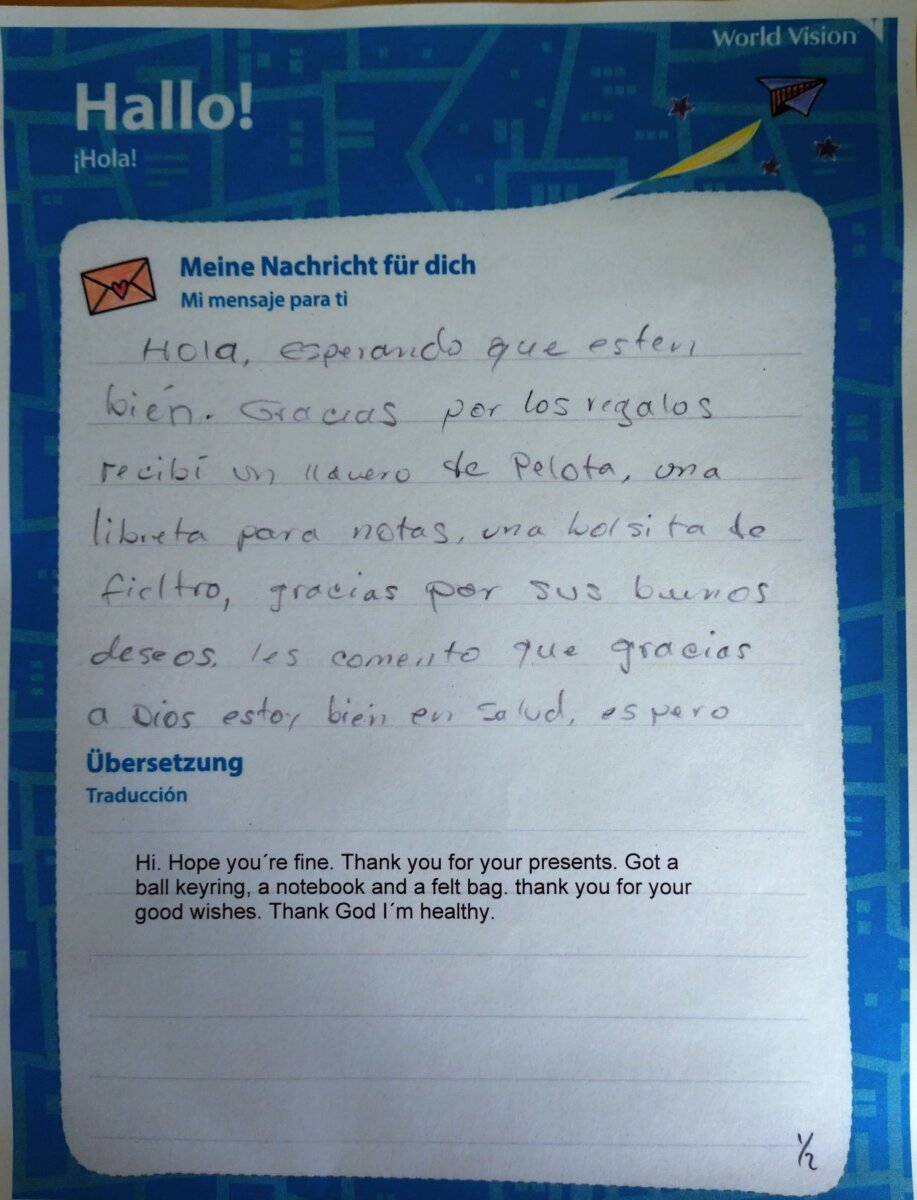 World Vision
Hallo!
¡Hola!
Meine Nachricht für dich
Mi mensaje para ti
Hola, esperando que esten
bién. Gracias por los regalos
recibí un llavero de Pelota, una
libreta para notas, una bolsita de
fieltro, gracias por sus buenos
deseos. les comento que gracias
a Dios estoy bién en salud, espero
Übersetzung
Traducción
Hi. Hope you´re fine. Thank you for your presents. Got a
ball keyring, a notebook and a felt bag. thank you for your
good wishes. Thank God I´m healthy.
1/2